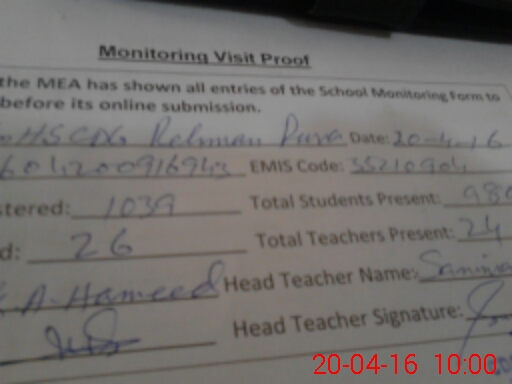 Monitoring Visit Proof
the MEA has shown all entries of the School Monitoring Form to
before its online submission.
Rehman Pura Date: 20-4-16
EMIS Code: 35210904
stered: 1039 Total Students Present: 980
d: 26 Total Teachers Present: 24
A. Hameed Head Teacher Name:
Head Teacher Signature:
20-04-16 10:00